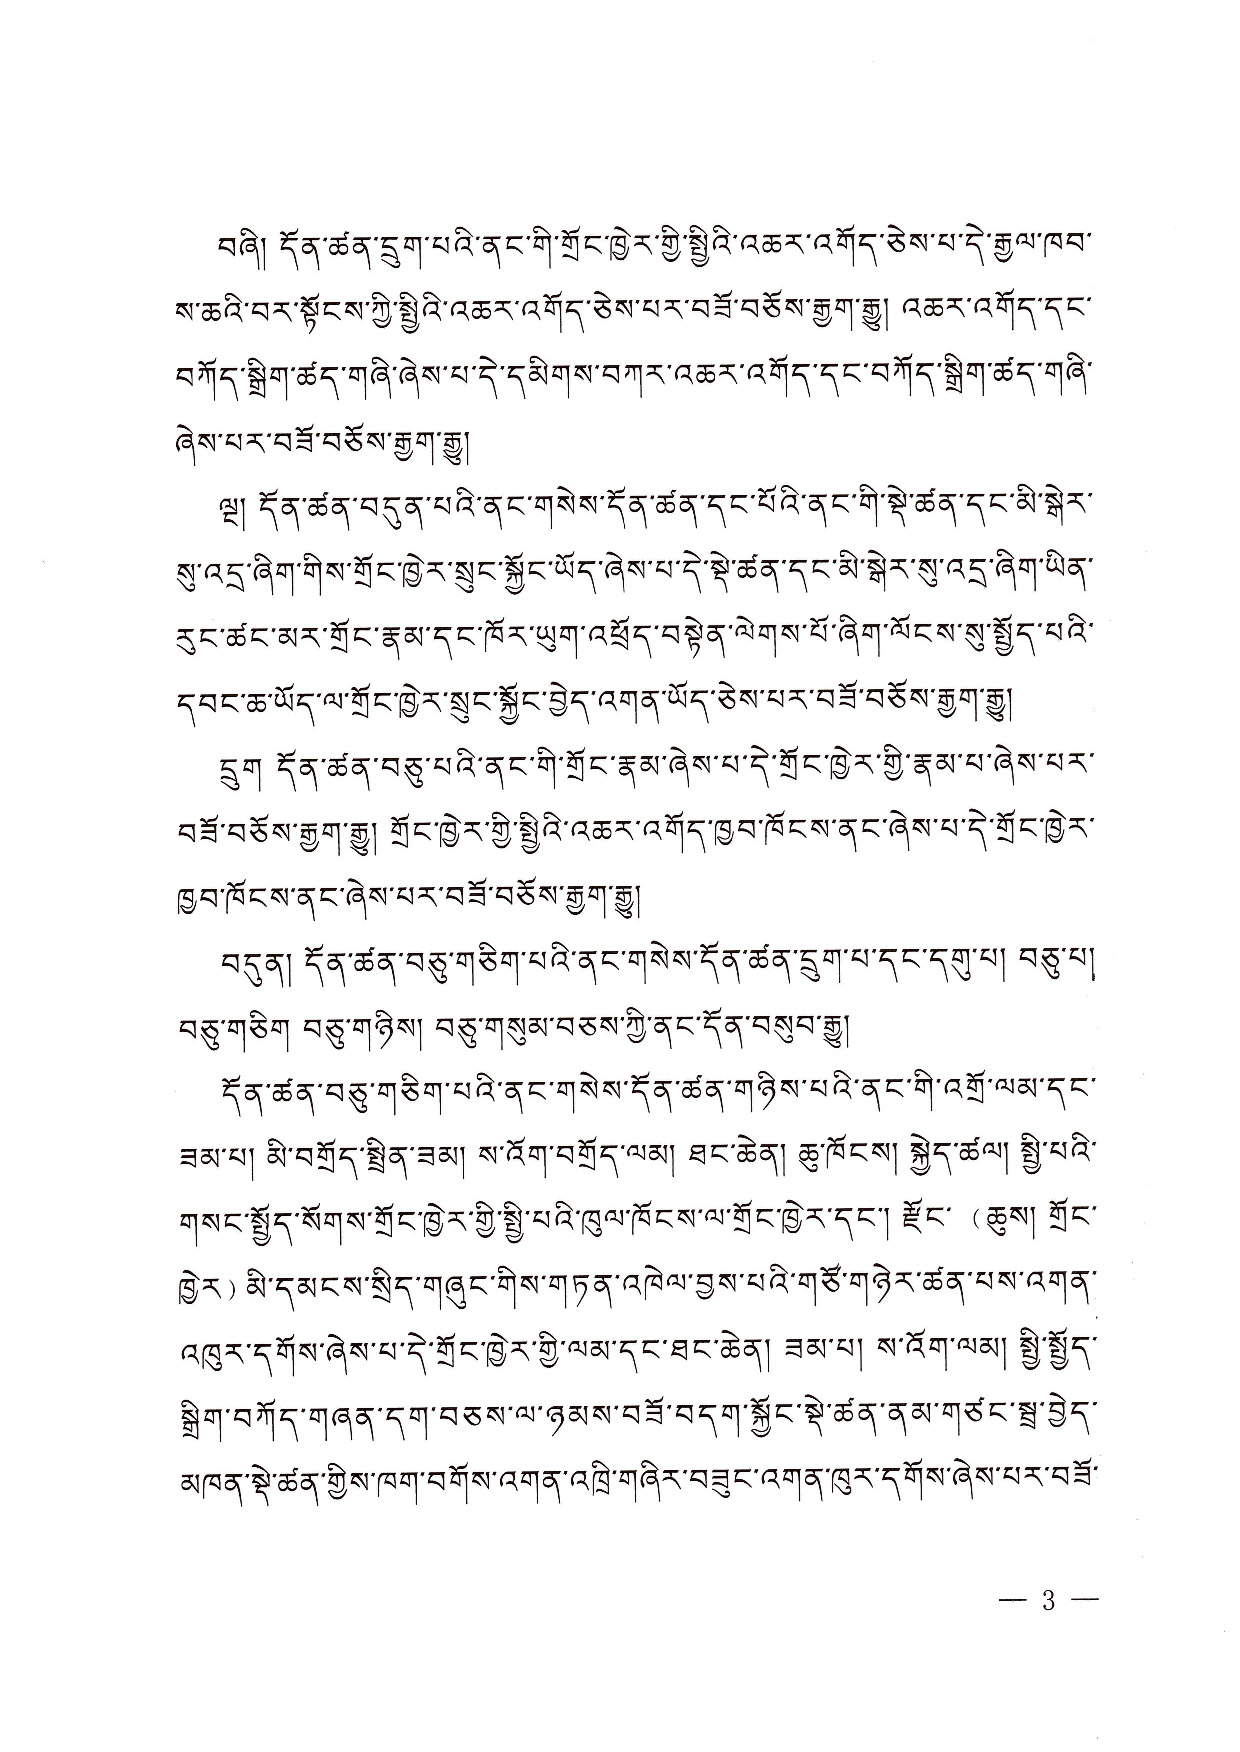 བཞི། དོན་ཚན་དྲུག་པའི་ནང་གི་གྲོང་ཁྱེར་གྱི་སྤྱིའི་འཆར་འགོད་ཅེས་པ་དེ་རྒྱལ་ཁབ་
ས་ཆའི་བར་སྟོངས་ཀྱི་སྤྱིའི་འཆར་འགོད་ཅེས་པར་བཟོ་བཅོས་རྒྱག་རྒྱུ། འཆར་འགོད་དང་
བཀོད་སྒྲིག་ཚད་གཞི་ཞེས་པ་དེ་དམིགས་བཀར་འཆར་འགོད་དང་བཀོད་སྒྲིག་ཚད་གཞི་
ཞེས་པར་བཟོ་བཅོས་རྒྱག་རྒྱུ།
ལྔ། དོན་ཚན་བདུན་པའི་ནང་གསེས་དོན་ཚན་དང་པོའི་ནང་གི་སྡེ་ཚན་དང་མི་སྒེར་
སུ་འདྲ་ཞིག་གིས་གྲོང་ཁྱེར་སྲུང་སྐྱོང་ཡོད་ཞེས་པ་དེ་སྡེ་ཚན་དང་མི་སྒེར་སུ་འདྲ་ཞིག་ཡིན་
རུང་ཚང་མར་གྲོང་རྣམ་དང་ཁོར་ཡུག་འཕྲོད་བསྟེན་ལེགས་པོ་ཞིག་ལོངས་སུ་སྤྱོད་པའི་
དབང་ཆ་ཡོད་ལ་གྲོང་ཁྱེར་སྲུང་སྐྱོང་བྱེད་འགན་ཡོད་ཅེས་པར་བཟོ་བཅོས་རྒྱག་རྒྱུ།
དྲུག དོན་ཚན་བཅུ་པའི་ནང་གི་གྲོང་རྣམ་ཞེས་པ་དེ་གྲོང་ཁྱེར་གྱི་རྣམ་པ་ཞེས་པར་
བཟོ་བཅོས་རྒྱག་རྒྱུ། གྲོང་ཁྱེར་གྱི་སྤྱིའི་འཆར་འགོད་ཁྱབ་ཁོངས་ནང་ཞེས་པ་དེ་གྲོང་ཁྱེར་
ཁྱབ་ཁོངས་ནང་ཞེས་པར་བཟོ་བཅོས་རྒྱག་རྒྱུ།
བདུན། དོན་ཚན་བཅུ་གཅིག་པའི་ནང་གསེས་དོན་ཚན་དྲུག་པ་དང་དགུ་པ། བཅུ་པ།
བཅུ་གཅིག བཅུ་གཉིས། བཅུ་གསུམ་བཅས་ཀྱི་ནང་དོན་བསུབ་རྒྱུ།
དོན་ཚན་བཅུ་གཅིག་པའི་ནང་གསེས་དོན་ཚན་གཉིས་པའི་ནང་གི་འགྲོ་ལམ་དང་
ཟམ་པ། མི་བགྲོད་སྤྲིན་ཟམ། ས་འོག་བགྲོད་ལམ། ཐང་ཆེན། ཆུ་ཁོངས། སྐྱེད་ཚལ། སྤྱི་པའི་
གསང་སྤྱོད་སོགས་གྲོང་ཁྱེར་གྱི་སྤྱི་པའི་ཁུལ་ཁོངས་ལ་གྲོང་ཁྱེར་དང་། རྫོང་ (ཆུས། གྲོང་
ཁྱེར) མི་དམངས་སྲིད་གཞུང་གིས་གཏན་འཁེལ་བྱས་པའི་གཙོ་གཉེར་ཚན་པས་འགན་
འཁུར་དགོས་ཞེས་པ་དེ་གྲོང་ཁྱེར་གྱི་ལམ་དང་ཐང་ཆེན། ཟམ་པ། ས་འོག་ལམ། སྤྱི་སྤྱོད་
སྒྲིག་བཀོད་གཞན་དག་བཅས་ལ་ཉམས་བཟོ་བདག་སྐྱོང་སྡེ་ཚན་ནམ་གཙང་སྦྲ་བྱེད་
མཁན་སྡེ་ཚན་གྱིས་ཁག་བགོས་འགན་འཁྲི་གཞིར་བཟུང་འགན་ཁུར་དགོས་ཞེས་པར་བཟོ་
— 3 —